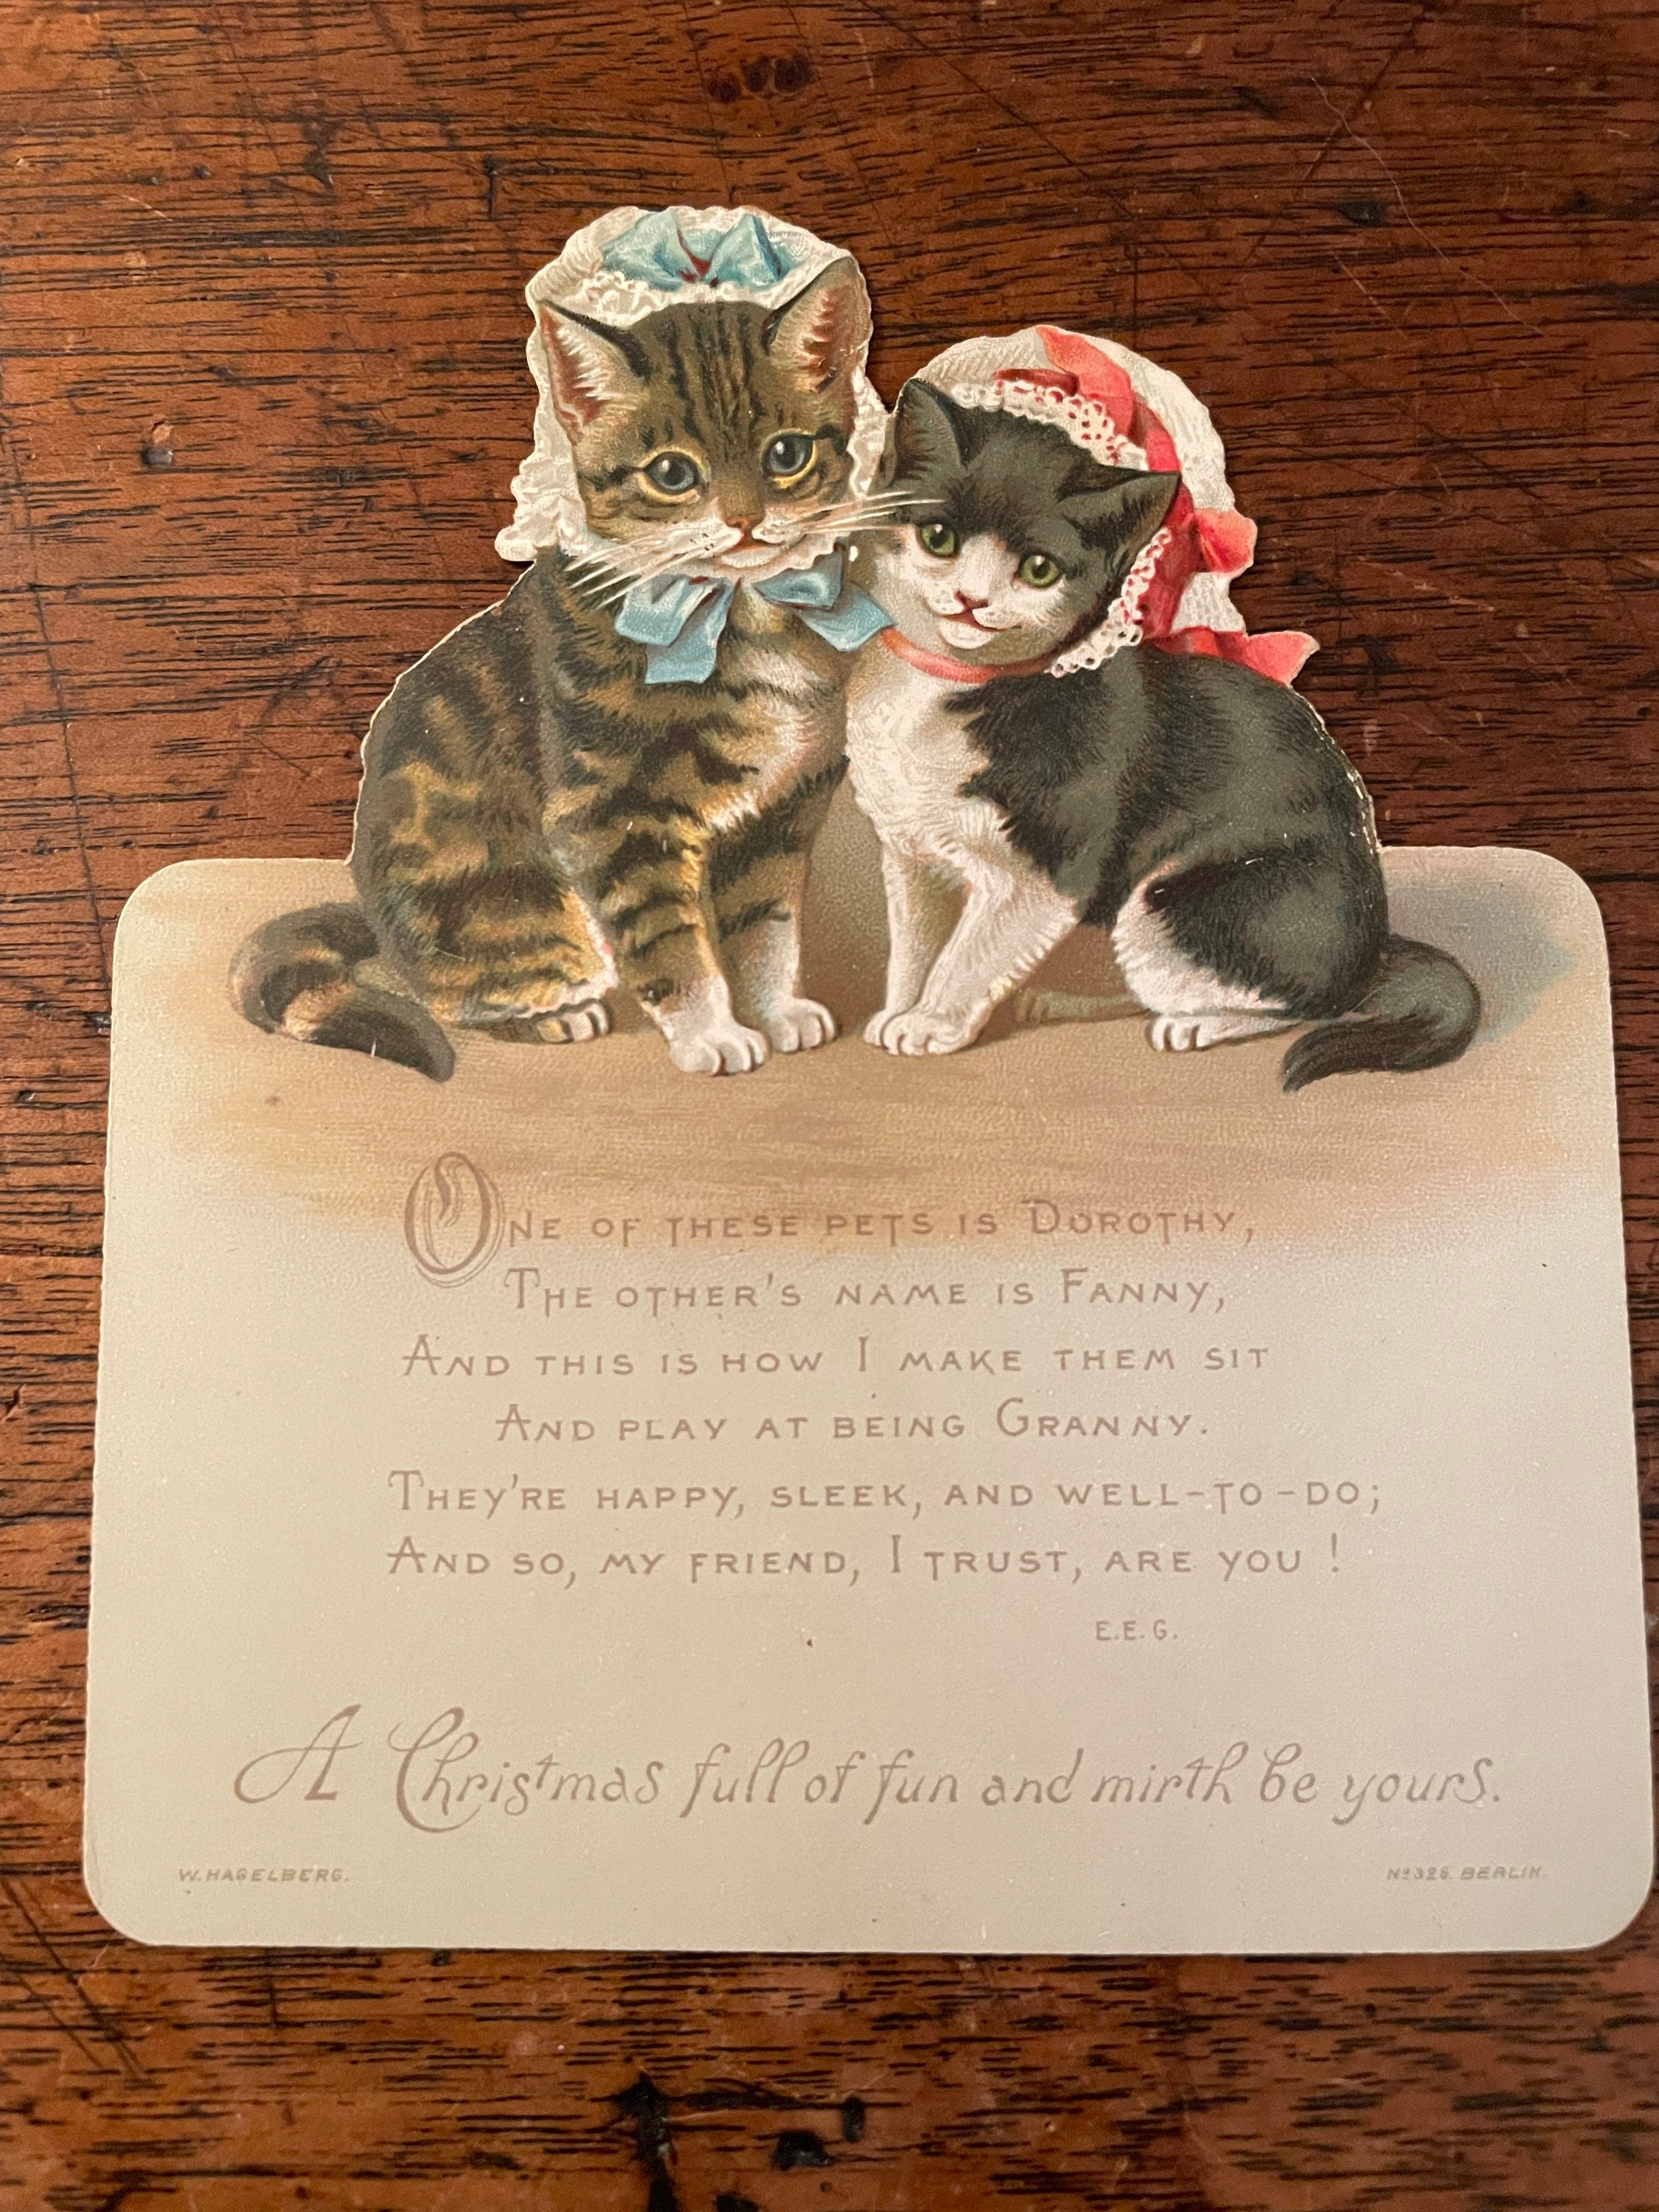 One of these pets is Dorothy,
The other's name is Fanny,
And this is how I make them sit
And play at being Granny.
They're happy, sleek, and well-to-do;
And so, my friend, I trust, are you !
E.E.G.
A Christmas full of fun and mirth be yours.
W. HAGELBERG.
Nº 326. BERLIN.